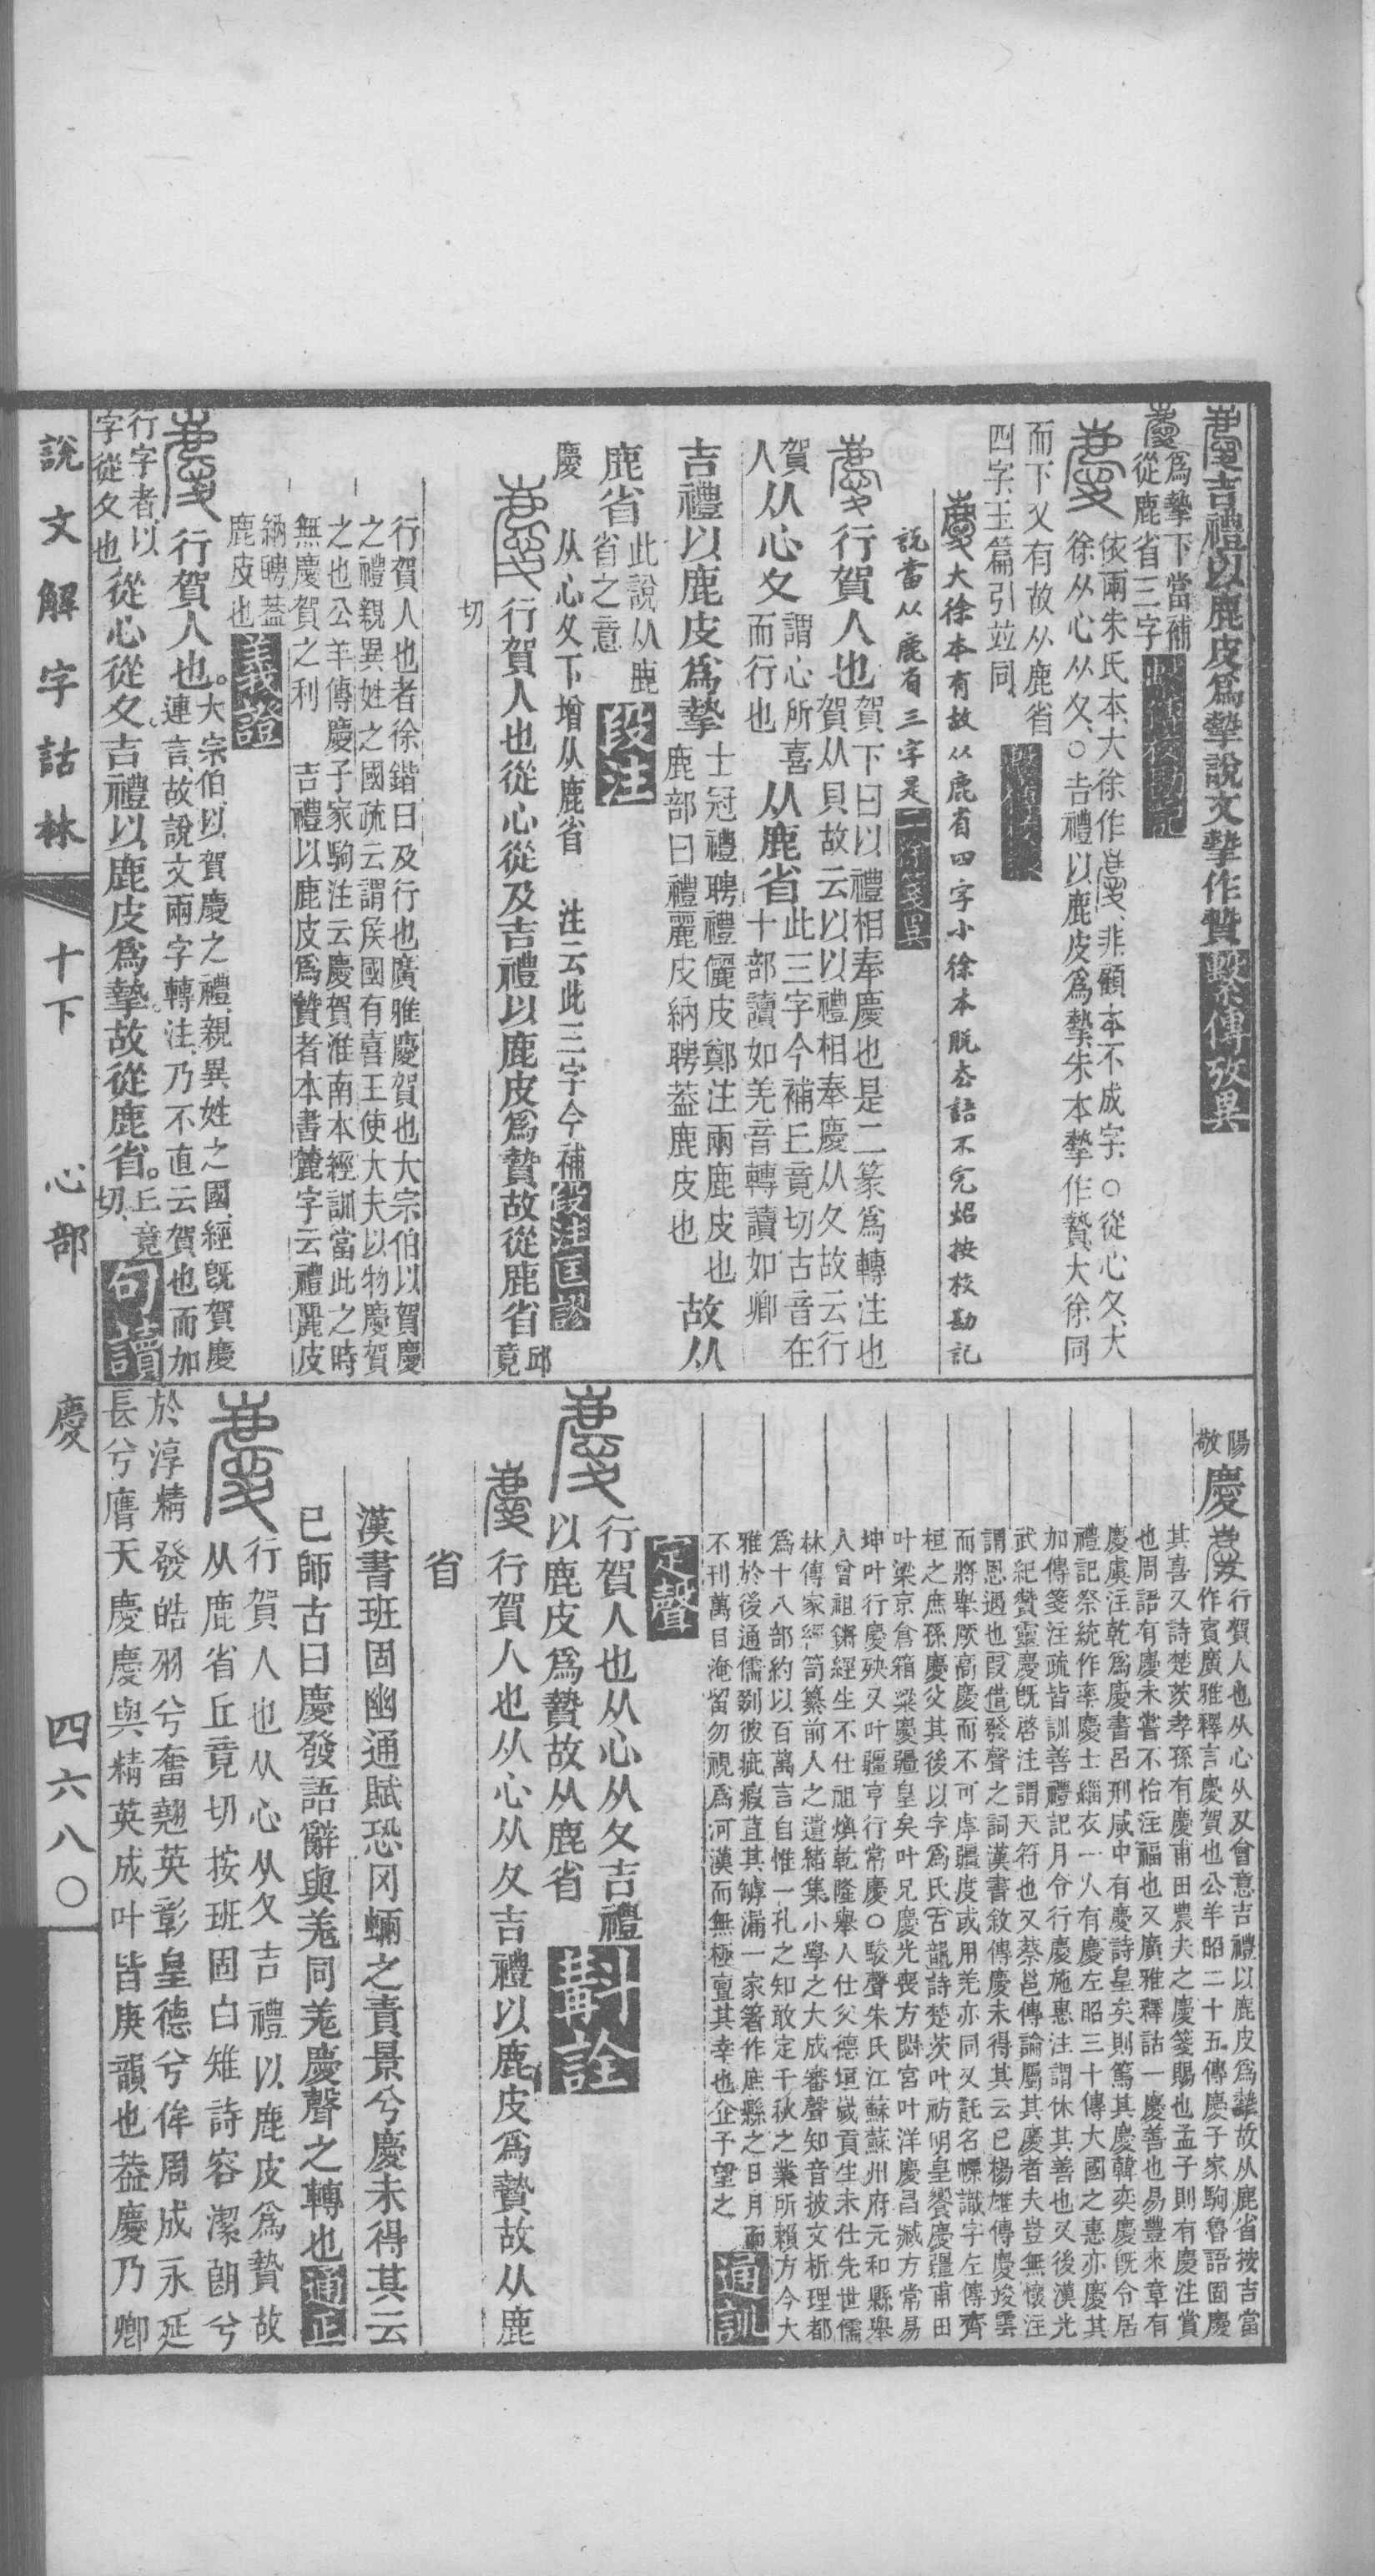 慶吉禮以鹿皮爲摯說文摯作贄繫傳攷異
慶爲摯下當補
從鹿省三字繫傳校勘記
慶依兩朱氏本大徐作慶非顧本不成字○從心夊大
徐从心从夊○吉禮以鹿皮爲摯朱本摯作贄大徐同
而下又有故从鹿省
四字玉篇引竝同
慶大徐本有故从鹿省四字小徐本脫去語不完炤按校勘記
說當从鹿省三字是二徐箋異
慶行賀人也賀下曰以禮相奉慶也是二篆爲轉注也
賀从貝故云以禮相奉慶从夊故云行
賀
人从心夊謂心所喜
而行也从鹿省此三字今補丘竟切古音在
十部讀如羌音轉讀如卿
吉禮以鹿皮爲摯士冠禮聘禮儷皮鄭注兩鹿皮也
鹿部曰禮麗皮納聘葢鹿皮也故从
鹿省此說从鹿
省之意段注
慶从心夊下增从鹿省 注云此三字今補段注匡謬
慶行賀人也從心從及吉禮以鹿皮爲贄故從鹿省邱
竟
切
行賀人也者徐鍇曰及行也廣雅慶賀也大宗伯以賀慶
之禮親異姓之國疏云謂侯國有喜王使大夫以物慶賀
之也公羊傳慶子家駒注云慶賀淮南本經訓當此之時
無慶賀之利 吉禮以鹿皮爲贄者本書麗字云禮麗皮
納聘葢
鹿皮也義證
慶行賀人也。大宗伯以賀慶之禮親異姓之國經旣賀慶
連言故說文兩字轉注乃不直云賀也而加
行字者以
字從夊也從心從夊吉禮以鹿皮爲摯故從鹿省。丘竟
切句讀
說文解字詁林 十下 心部 慶 四六八〇
陽
敬慶慶行賀人也从心从夊會意吉禮以鹿皮爲摯故从鹿省按吉當
作賓廣雅釋言慶賀也公羊昭二十五傳慶子家駒魯語固慶
其喜又詩楚茨孝孫有慶甫田農夫之慶箋賜也孟子則有慶注賞
也周語有慶未嘗不怡注福也又廣雅釋詁一慶善也易豐來章有
慶虞注乾爲慶書呂刑咸中有慶詩皇矣則篤其慶韓奕慶旣令居
禮記祭統作率慶士緇衣一人有慶左昭三十傳大國之惠亦慶其
加傳箋注疏皆訓善禮記月令行慶施惠注謂休其善也又後漢光
武紀贊靈慶旣啓注謂天符也又蔡邕傳論屬其慶者夫豈無懷注
謂恩遇也叚借發聲之詞漢書敘傳慶未得其云已楊雄傳慶竣雲
而將舉厥高慶而不可虖疆度或用羌亦同又託名幖識字左傳齊
桓之庶孫慶父其後以字爲氏古韻詩楚茨叶祊明皇饗慶疆甫田
叶梁京倉箱粱慶疆皇矣叶兄慶光喪方閟宮叶洋慶昌臧方常易
坤叶行慶殃又叶疆亨行常慶○駿聲朱氏江蘇蘇州府元和縣舉
人曾祖鏘經生不仕祖煥乾隆舉人仕父德垣歲貢生未仕先世儒
林傳家經笥纂前人之遺緒集小學之大成審聲知音披文析理都
爲十八部約以百萬言自惟一孔之知敢定千秋之業所賴方今大
雅於後通儒剟彼疵瘕苴其罅漏一家箸作庶縣之日月而
不刊萬目淹留勿視爲河漢而無極亶其幸也企予望之通訓
定聲
慶行賀人也从心从夊吉禮
以鹿皮爲贄故从鹿省斠詮
慶行賀人也从心从夊吉禮以鹿皮爲贄故从鹿
省
漢書班固幽通賦恐冈蛧之責景兮慶未得其云
已師古曰慶發語辭與羌同羌慶聲之轉也通正
慶行賀人也从心从夊吉禮以鹿皮爲贄故
从鹿省丘竟切按班固白雉詩容潔朗兮
於淳精發皓羽兮奮翹英彰皇德兮侔周成永延
長兮膺天慶慶與精英成叶皆庚韻也葢慶乃卿